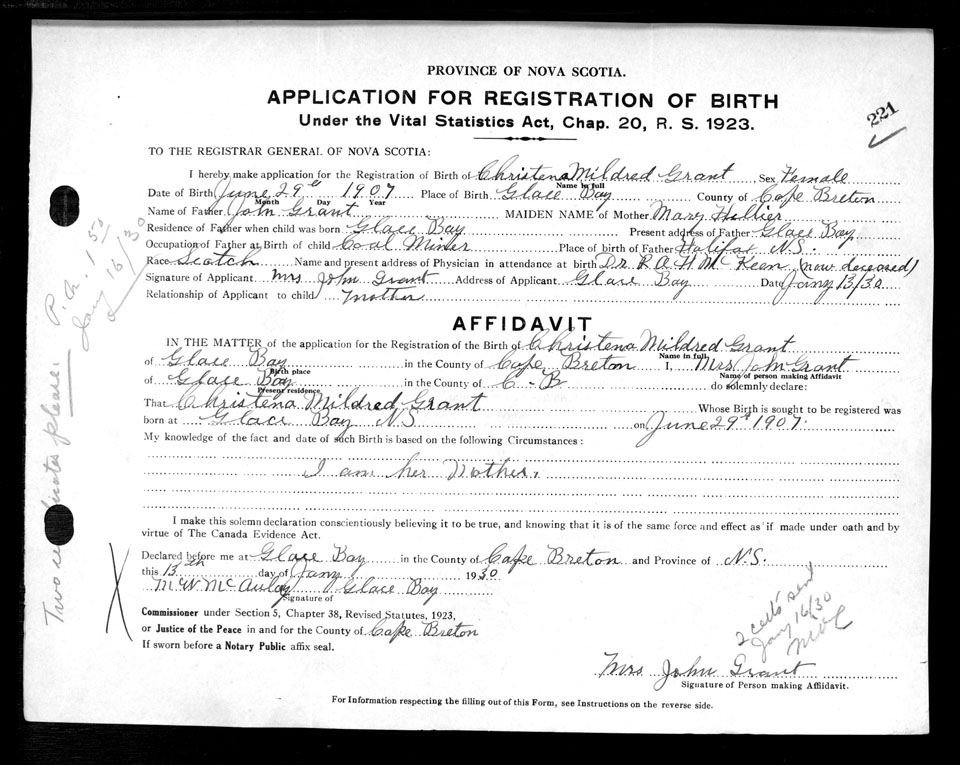 PROVINCE OF NOVA SCOTIA.
APPLICATION FOR REGISTRATION OF BIRTH
Under the Vital Statistics Act, Chap. 20, R. S. 1923.
221
TO THE REGISTRAR GENERAL OF NOVA SCOTIA:
I hereby make application for the Registration of Birth of Christena Mildred Grant Sex Female
Name in full
Date of Birth June 29th 1907 Place of Birth Glace Bay County of Cape Breton
Month Day Year
Name of Father John Grant MAIDEN NAME of Mother Mary Hillier
Residence of Father when child was born Glace Bay Present address of Father Glace Bay
Occupation of Father at Birth of child Coal Miner Place of birth of Father Halifax N.S.
Race Scotch Name and present address of Physician in attendance at birth Dr. R A H McKean (now deceased)
Signature of Applicant Mrs John Grant Address of Applicant Glace Bay Date Jany 13/30
Relationship of Applicant to child Mother
AFFIDAVIT
IN THE MATTER of the application for the Registration of the Birth of Christena Mildred Grant
Name in full
of Glace Bay in the County of Cape Breton I, Mrs John Grant
Birth place Name of person making Affidavit
of Glace Bay in the County of C-B do solemnly declare:
Present residence
That Christena Mildred Grant Whose Birth is sought to be registered was
born at Glace Bay NS on June 29th 1907.
My knowledge of the fact and date of such Birth is based on the following Circumstances:
I am her Mother.
I make this solemn declaration conscientiously believing it to be true, and knowing that it is of the same force and effect as if made under oath and by
virtue of The Canada Evidence Act.
Declared before me at Glace Bay in the County of Cape Breton and Province of N.S.
this 13th day of Jany 1930
M W McAulay Glace Bay
Signature of
Commissioner under Section 5, Chapter 38, Revised Statutes, 1923,
or Justice of the Peace in and for the County of Cape Breton
If sworn before a Notary Public affix seal.
2 certs sent
Jany 16/30
Mrs John Grant
Signature of Person making Affidavit.
For Information respecting the filling out of this Form, see Instructions on the reverse side.
Two please.
Jany 16/30